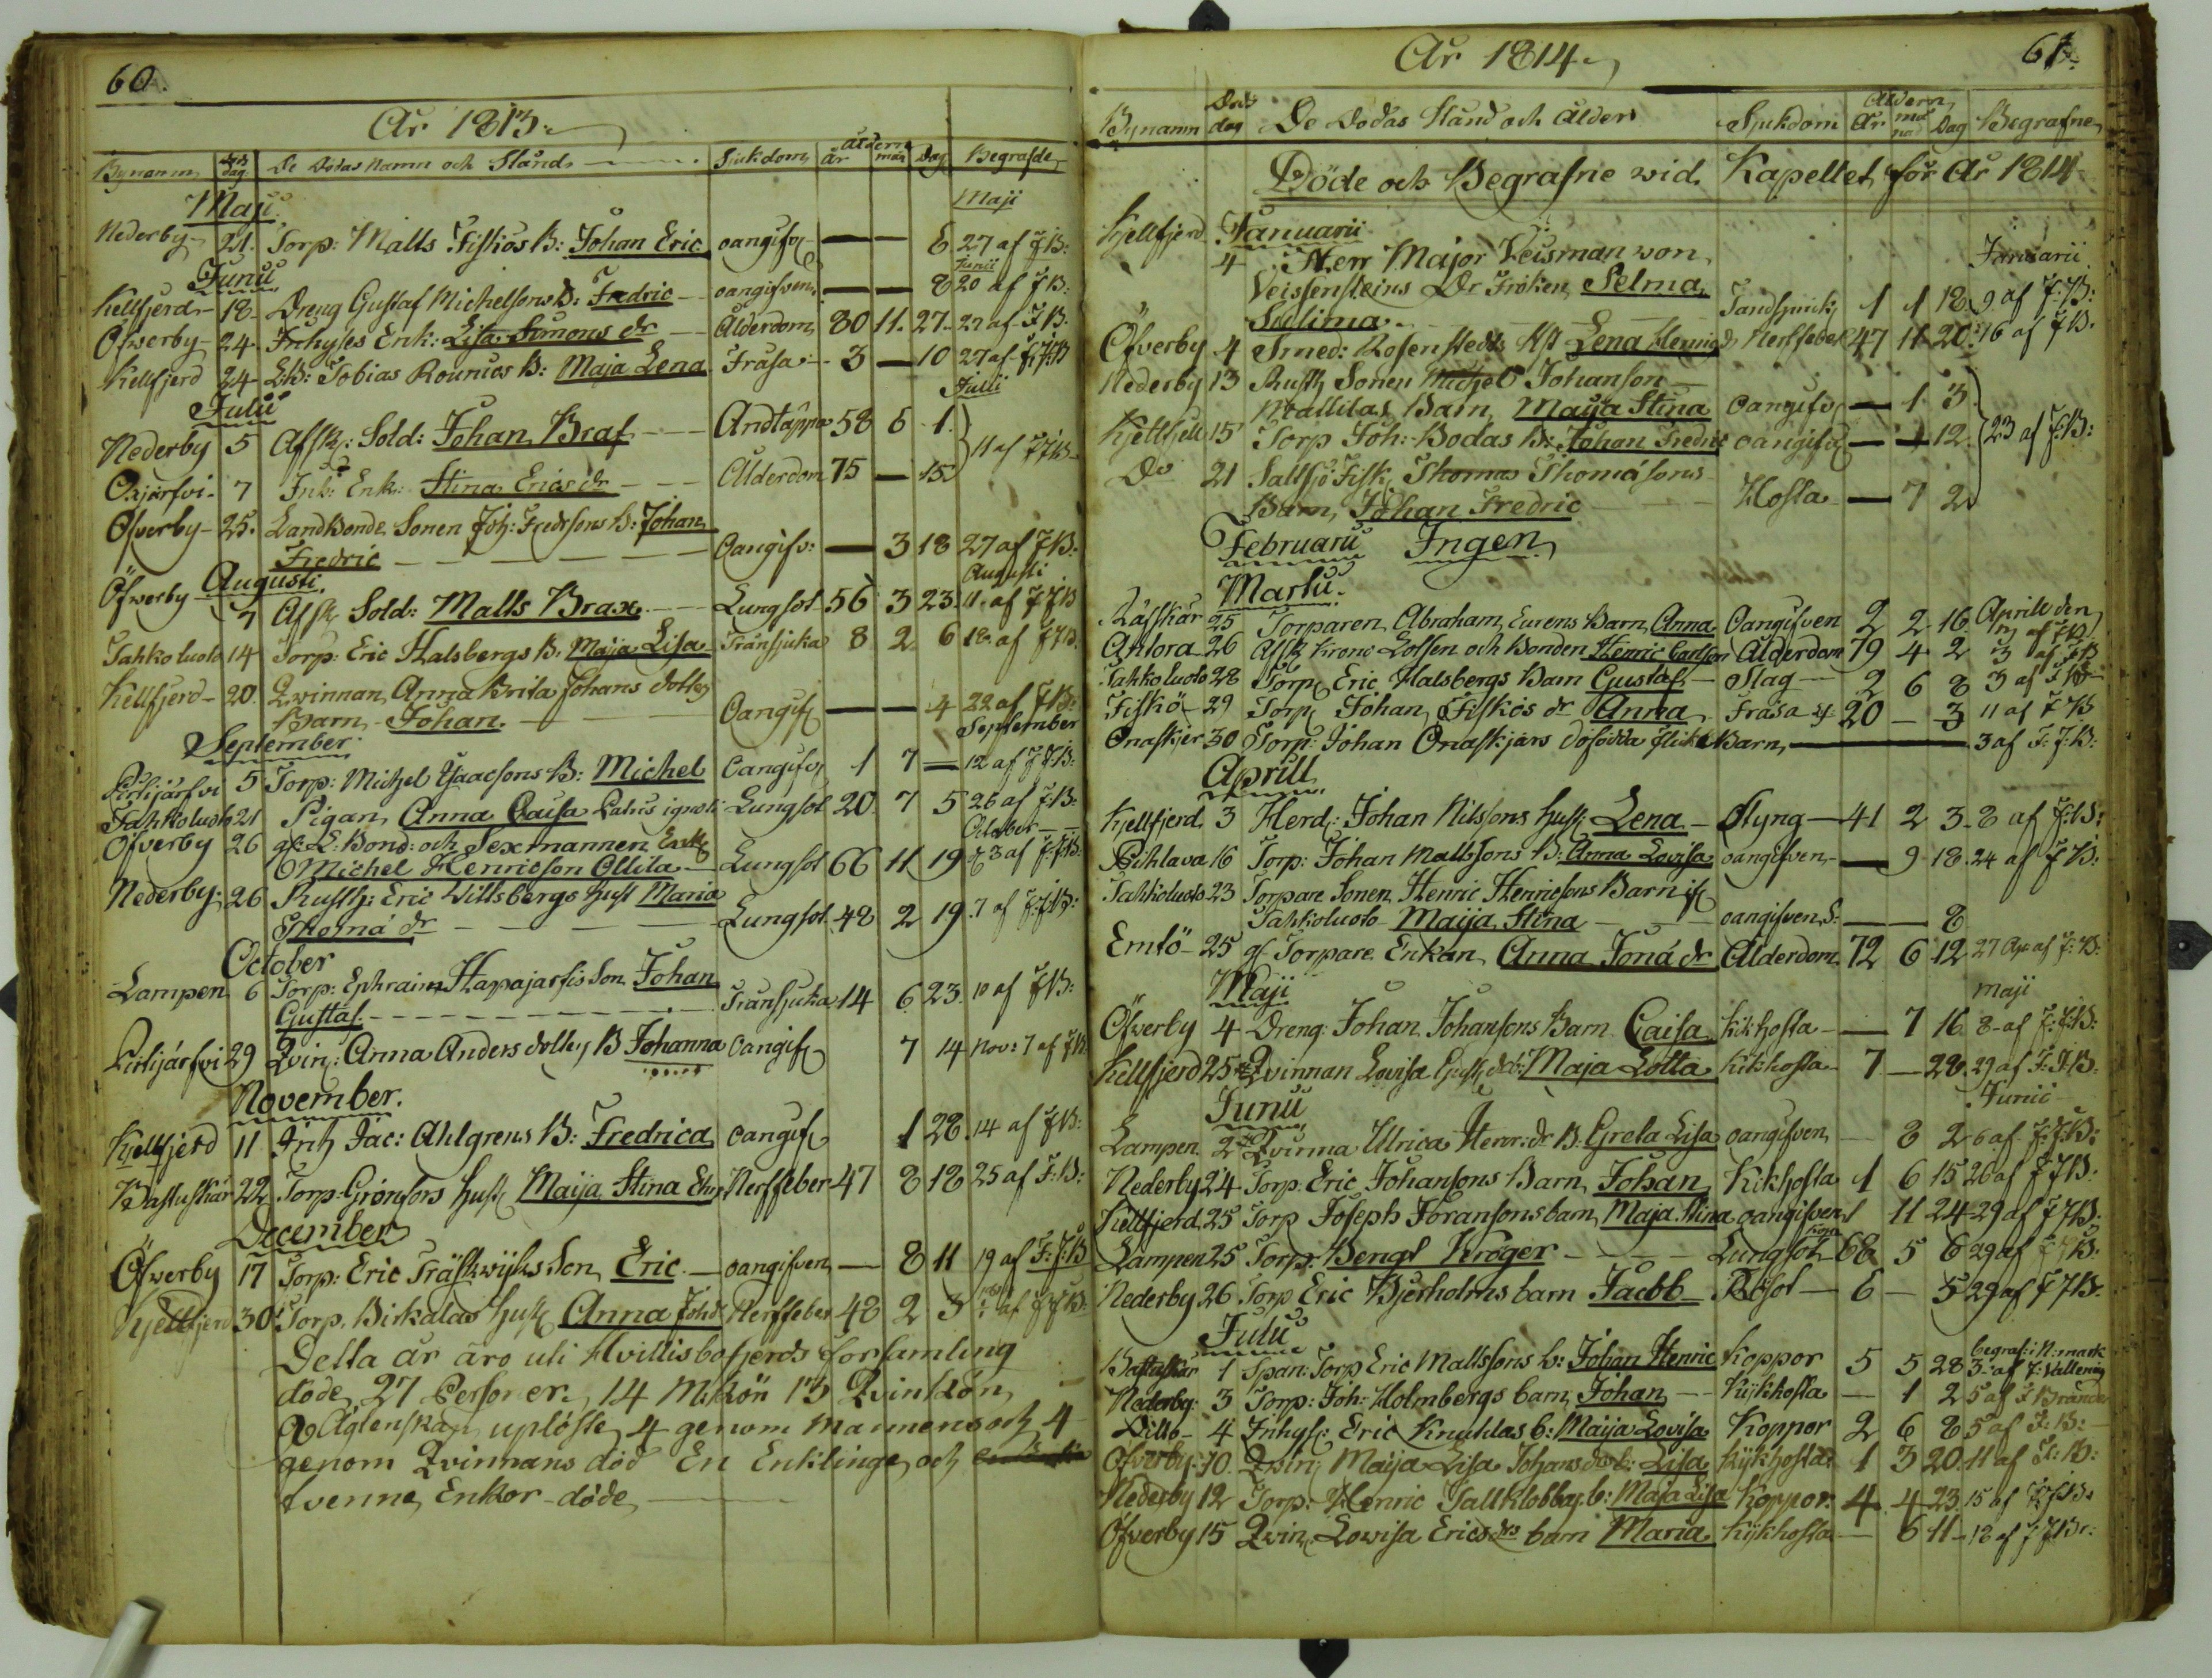 60.
År 1813.
Bynamn Död dag De Dödas Namn och Stånd Sjukdom Åldern År mån Dag Begrafde
Maji Maji
Nederby 21. Torp: Matts Fiskös B: Johan Eric oangifv — — 6 27 af J B:
Junii Junii
Kellfjerd 18. Dreng Gustaf Michelsons B: Fredric oangifven — — 8 20 af J B:
Öfverby 24. Inhyses Enk: Lisa Simons dr Ålderdom 80 11. 27. 27 af J B.
Kellfjerd 24 LB: Tobias Rounios B: Maja Lena Frasa 3 — 10 27 af J:B
Julii Julii
Nederby 5 Afsk: Sold: Johan Braf Andtäppa 58 6 1.
11 af J B
Oxjärfvi 7 Inh: Enk: Stina Erics dr Ålderdom 75 — 15
Öfverby 25. Landbonde Sonen Joh: Fredrsons B: Johan
Fredric Oangifv: — 3 18 27 af J B:
Augusti. Augusti
Öfwerby 7 Afsk Sold: Matts Brax Lungsot 56 3 23. 11 af J B
Tahkoluoto 14 Torp: Eric Halsbergs B. Maja Lisa Transjuka 8 2 6 18 af J B.
Kellfjerd 20. Qvinnan Anna Brita Johans dotters
Barn Johan. Oangif — — 4 22 af J B:
September September
5 Torp: Michel Isaacsons B: Michel Oangifv 1 7 — 12 af J B:
Tahkoluoto 21 Pigan Anna Caisa Patris ignoti Lungsot 20. 7 5 26 af J:B:
October
Öfverby 26 gl: L: Bond: och Sexmannen Enkl
Michel Henricson Ollila Lungsot 66 11 19 3 af J:B:
Nederby 26 Rusth: Eric Willsbergs hust Maria
Thoma dr Lungsot 48 2 19 7 af J:B:
October
Lampen 6 Torp: Ephraim Hapajarfis Son Johan
Gustaf. Transjuka 14 6 23. 10 af J B:
Pirlijärfvi 29 Qvin: Anna Anders dotters B Johanna oangif 7 14 Nov: 7 af J B
November.
Kellfjerd 11 Inh Jac: Ahlgrens B: Fredrica oangif 1 28. 14 af J B:
Bastuskär 22 Torp: Grönfors hust Maija Stina Nerffeber 47 8 18 25 af J:B:
December
Öfwerby 17 Torp: Eric Träskwijks Son Eric. oangifven — 8 11 19 af J:B
Kjellfjerd 30 Torp. Birkalas hust Anna Joh dr Nerffeber 48 2 3 af J B:
Detta år äro uti Hvittisbofjerds församling
döde 27 Personer, 14 Mankön 13 Qvinkön
Ägtenskap uplöste, 4 genom mannens och 4
genom Qvinnans död En Enklinge och
tvenne Enkor döde
År 1814. 61.
Bynamn Död dag De Dödas Stånd och Ålder Sjukdom Åldern År må na Dag Begrafne
Döde och Begrafne wid Kapellet för År 1814
Kjellfjerd Januarii Januarii
4 Herr Major Veisman von
Veissensteins Dr Fröken Selma
Sselima. Tandsprick 1 1 18. 9 af J:B:
Öfverby 4 Smed: Rosenstedts Hst Lena Hennigs d Nerffeber 47 11 20. 16 af J B.
Nederby 13 Rusth Sonen Michel Johanson
Mattilas Barn Maija Stina Oangifv — 1 3
Kjellfjell 15 Torp Joh: Bodas B: Johan Fredric oangifv — 1 12. 23 af J:B:
Do 21 Saltsjö Fisk Thomas Thomäsons
Barn Johan Fredric Hosta — 7 2
Februarii Ingen
Martii.
Räfskär 25 Torparen Abraham Eurens Barn Anna Oangifven 2 2 16 Aprill den
Ahlora 26 Afsk Krono Lotsen och Bonden Henric Carlson Ålderdom 79 4 2 3 af J B
Tahkoluoto 28 Torp Eric Halsbergs Barn Gustaf. Slag 2 6 8 3 af J B
Fiskö 29 Torp Johan Fiskös dr Anna Frasa 20 — 3 11 af J B
Onaskjer 30 Torp: Johan Onaskjärs dödfödda flicke Barn — 3 af J: B:
Aprill
Kjellfjerd 3 Herd: Johan Nilssons hust Lena Styng 41 2 3. 8 af J:B:
Pihlava 16 Torp: Johan Mattssons B: Anna Lovisa oangifven — 9 18. 24 af J B:
Tahkoluoto 23 Torpare Sonen Henric Henricsons Barn if
Tahkoluoto Maija Stina oangifven — — 8
Emtö 25 gl Torpare Enkan Anna Jona dr Ålderdom 72 6 12 27 Apr af J:B:
Maji Maji
Öfverby 4 Dreng: Johan Johansons Barn Caisa Kikhosta — 7 16 8 af J:B:
Kellfjerd 25 Qvinnan Lovisa Gust db: Maja Lotta Kikhosta 7 — 28. 29 af J:B:
Junii Junii
Lampen 2 Qvinna Ulrica Henr: dr B: Greta Lisa oangifven — 8 2 6 af J:B:
Nederby 24 Torp: Eric Johansons Barn Johan Kikhosta 1 6 15 26 af J B:
Kellfjerd 25 Torp Joseph Joransons barn Maja Stina oangifven 1 11 24 29 af J B:
Lampen 25 Torp: Bengt Kröger Lungsot 68 5 6 29 af J B:
Nederby 26 Torp Eric Bjerholms barn Jacob Rösot 6 — 5 29 af J B:
Julii begraf: i N:mark
Bastuskär 1 Span: Torp Eric Mattssons b: Johan Henric Koppor 5 5 28 3 af J: Vallenius
Nederby 3 Torp: Joh: Holmbergs barn Johan Kijkhosta — 1 2 5 af J Brander
Ditto 4 Inhys: Eric Knuklas b: Maija Lovisa Koppor 2 6 8 5 af J:B:
Öfverby 10. Qvin Maija Lisa Johans dotb: Lisa Kijkhosta 1 3 20. 11 af J:B:
Nederby 12 Torp: Henric Tallklobbas b: Maja Lisa Koppor. 4 4 23. 15 af J B:
Öfverby 15 Qvin Lowisa Erics drs barn Maria Kijkhosta — 6 11 18 af J B: